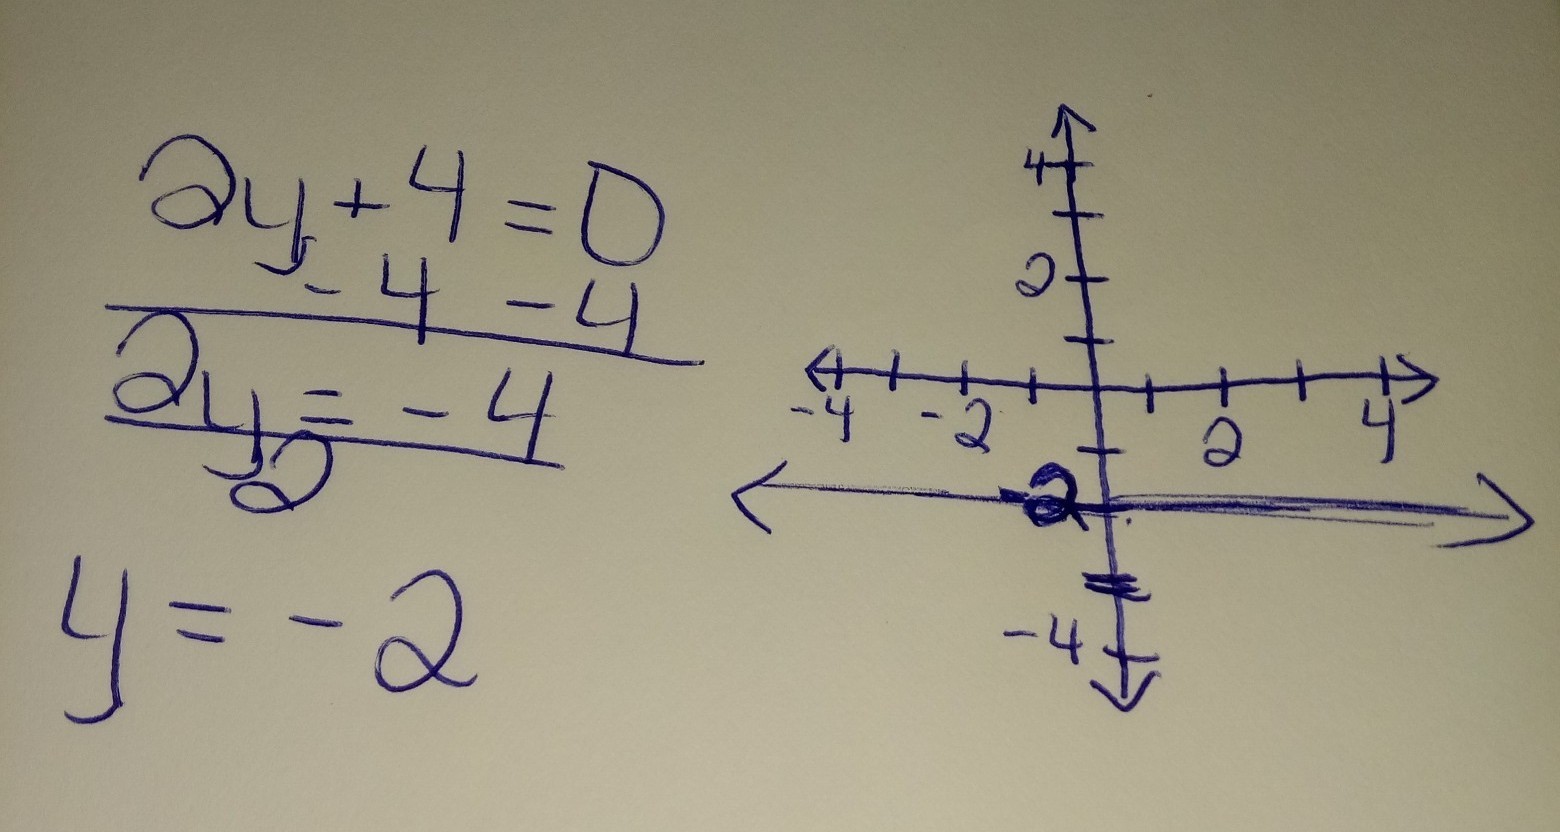 2y + 4 = 0
- 4 - 4
2y = - 4
2
y = - 2
4
2
-4 -2 2 4
-2
-4